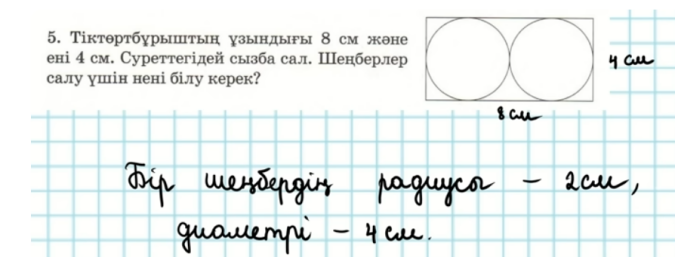 5. Тіктөртбұрыштың ұзындығы 8 см және
ені 4 см. Суреттегідей сызба сал. Шеңберлер
салу үшін нені білу керек?
4 см
8 см
Бір шеңбердің радиусы – 2 см,
диаметрі – 4 см.